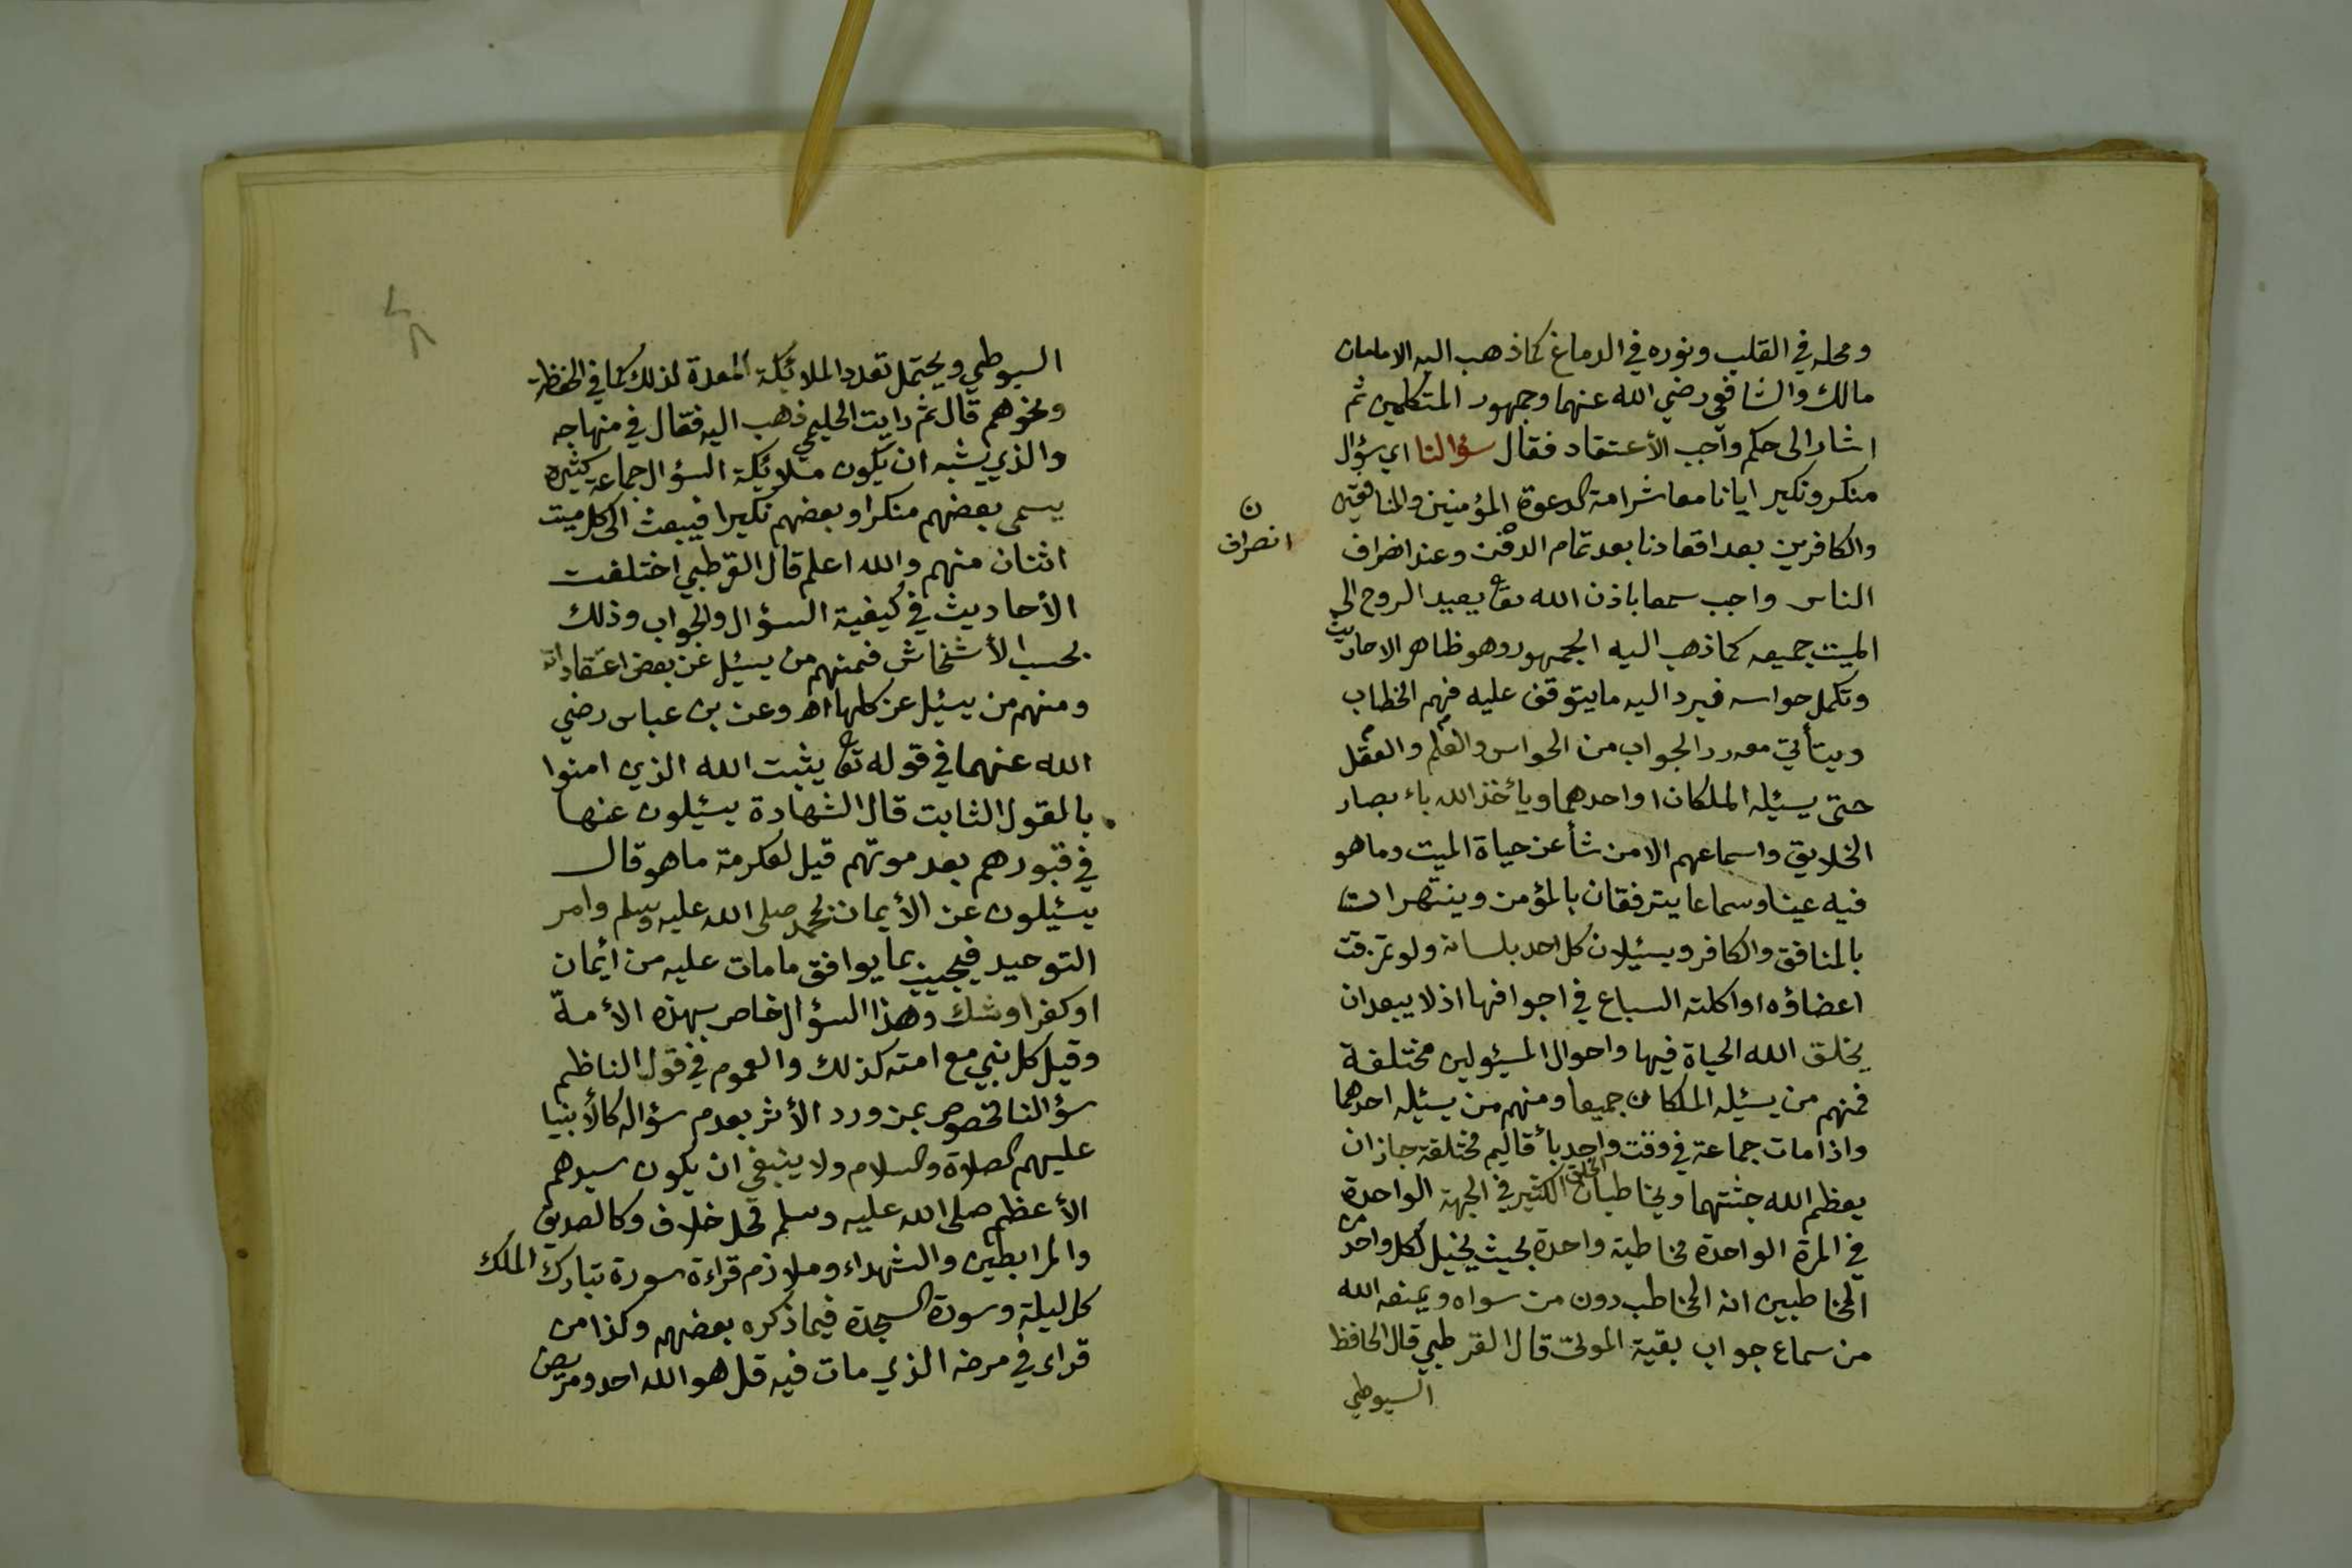 ومحله في القلب ونوره في الدماغ كما ذهب اليه الامامان
مالك والشافعي رضي الله عنهما وجمهور المتكلمين ثم
اشار الى حكم واجب الأعتقاد فقال سؤالنا اي سؤال
منكر ونكير ايانا معاشر امة الدعوة المؤمنين والمنافقين
والكافرين بعد اقعادنا بعد تمام الدفن وعند انصراف
ن
انصراف
الناس واجب سمعا باذن الله تعا يعيد الروح الى
الميت جميعه كما ذهب اليه الجمهور وهو ظاهر الاحاديث
وتكمل حواسه فيرد اليه ما يتوقف عليه فهم الخطاب
ويتأتى معه رد الجواب من الحواس والعلم والعقل
حتى يسئله الملكان او احدهما ويأخذ الله باءبصار
الخلايق واسماعهم الا من شأ عن حياة الميت وما هو
فيه عينا وسماعا يترفقان بالمؤمن وينتهرات
بالمنافق والكافر ويسئلان كل احد بلسانه ولو تمزقت
اعضاؤه او اكلته السباع في اجوافها اذ لا يبعد ان
يخلق الله الحياة فيها واحوال المسئولين مختلفة
فمنهم من يسئله الملكان جميعا ومنهم من يسئله احدهما
واذا مات جماعة في وقت واحد بأقاليم مختلفة جاز ان
يعظم الله جثتهما ويخاطبان الخلق الكثير في الجهة الواحدة
في المرة الواحدة مخاطبة واحدة بحيث يخيل لكل واحد من
المخاطبين انه المخاطب دون من سواه ويمنعه الله
من سماع جواب بقية الموتى قال القرطبي قال الحافظ
السيوطي
السيوطي ويحتمل تعدد الملائكة المعدة لذلك كما في الحفظة
ونحوهم قال ثم رايت الحليمي ذهب اليه فقال في منهاجه
والذي يشبه ان يكون ملائكة السؤال جماعة كثيرة
يسمى بعضهم منكرا وبعضهم نكيرا فيبعث الى كل ميت
اثنان منهم والله اعلم قال القرطبي اختلفت
الأحاديث في كيفية السؤال والجواب وذلك
بحسب الأشخاش فمنهم من يسئل عن بعض اعتقاداته
ومنهم من يسئل عن كلها اه وعن بن عباس رضي
الله عنهما في قوله تعا يثبت الله الذي امنوا
بالقول الثابت قال الشهادة يسئلون عنها
في قبورهم بعد موتهم قيل لعكرمة ما هو قال
يسئلون عن الأيمان بمحمد صلى الله عليه وسلم وامر
التوحيد فيجيب بما يوافق ما مات عليه من أيمان
او كفر او شك وهذا السؤال خاص بهذه الأمة
وقيل كل نبي مع امته كذلك والعموم في قول الناظم
سؤالنا مخصوص بمن ورد الأثر بعدم سؤاله كالأنبيا
عليهم الصلاة والسلام ولا ينبغي ان يكون سيدهم
الأعظم صلى الله عليه وسلم محل خلاف وكالصديق
والمرابطين والشهداء وملازم قراءة سورة تبارك الملك
كل ليلة وسورة السجدة فيما ذكره بعضهم وكذا من
قراء في مرضه الذي مات فيه قل هو الله احد ومريض